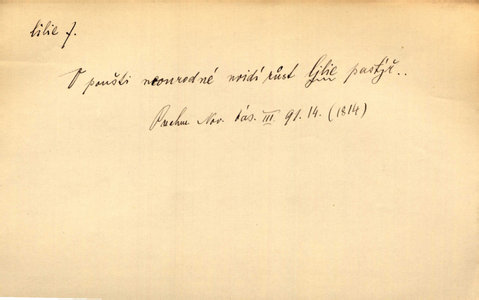 lilie f.
V poušti neourodné vidí růst ljlie pastýř..
Puchm. Nov. bás. III 91. 14. (1814)